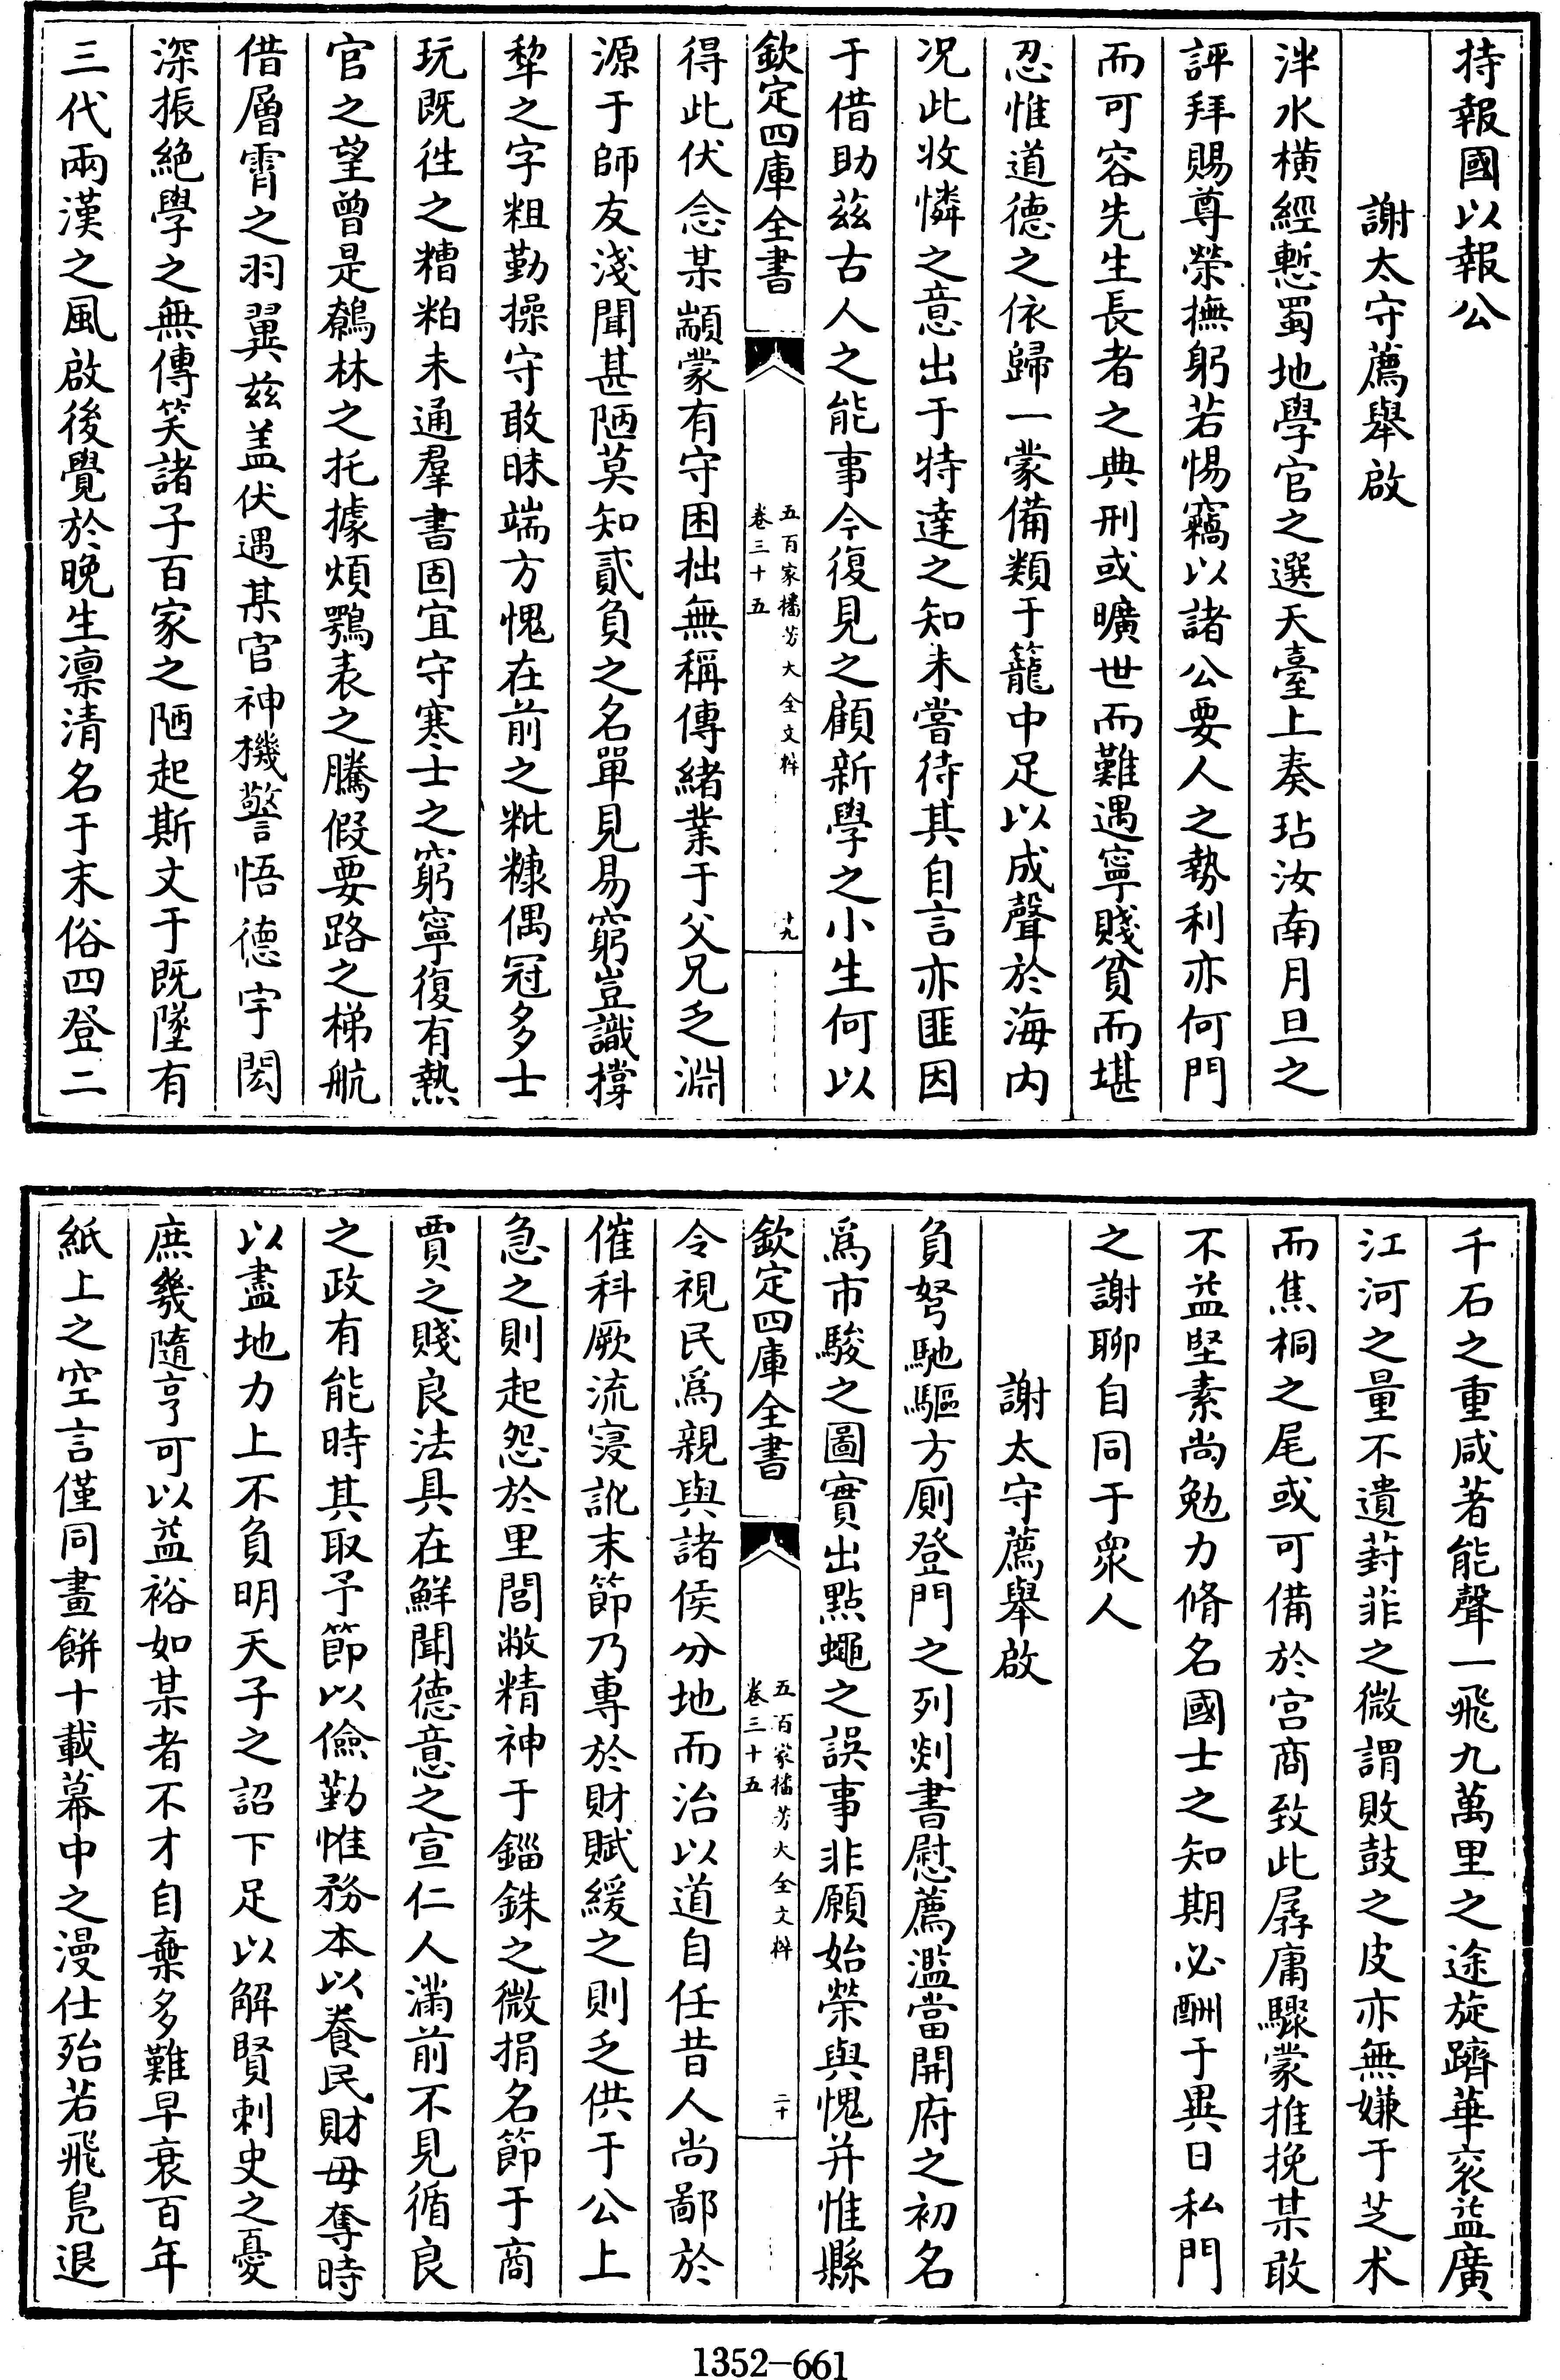 持報國以報公
謝太守薦舉啟
泮水橫經慙蜀地學官之選天臺上奏玷汝南月旦之
評拜賜尊榮撫躬若惕竊以諸公要人之勢利亦何門
而可容先生長者之典刑或曠世而難遇寧賤貧而堪
忍惟道德之依歸一蒙備類于籠中足以成聲於海内
况此收憐之意出于特達之知未嘗待其自言亦匪因
于借助兹古人之能事今復見之顧新學之小生何以
欽定四庫全書
五百家播芳大全文粹
卷三十五
十九
得此伏念某顓蒙有守困拙無稱傳緒業于父兄乏淵
源于師友淺聞甚陋莫知貳負之名單見易窮豈識撐
犂之字粗勤操守敢昧端方愧在前之粃糠偶冠多士
玩既徃之糟粕未通羣書固宜守寒士之窮寧復有熱
官之望曾是鷦林之托據煩鶚表之騰假要路之梯航
借層霄之羽翼兹盖伏遇某官神機警悟德宇閎
深振絶學之無傳笑諸子百家之陋起斯文于既墜有
三代兩漢之風啟後覺於晚生凛清名于末俗四登二
千石之重咸著能聲一飛九萬里之途旋躋華衮益廣
江河之量不遺葑菲之微謂敗鼓之皮亦無嫌于芝术
而焦桐之尾或可備於宫商致此孱庸驟蒙推挽某敢
不益堅素尚勉力脩名國士之知期必酬于異日私門
之謝聊自同于衆人
謝太守薦舉啟
負弩馳驅方厠登門之列剡書慰薦濫當開府之初名
爲市駿之圖實出點蠅之誤事非願始榮與愧并惟縣
欽定四庫全書
五百家播芳大全文粹
卷三十五
二十
令視民爲親與諸侯分地而治以道自任昔人尚鄙於
催科厥流寖訛末節乃專於財賦緩之則乏供于公上
急之則起怨於里閭敝精神于錙銖之微捐名節于商
賈之賤良法具在鮮聞德意之宣仁人滿前不見循良
之政有能時其取予節以儉勤惟務本以養民財毋奪時
以盡地力上不負明天子之詔下足以解賢刺史之憂
庶幾隨亨可以益裕如某者不才自棄多難早衰百年
紙上之空言僅同畫餅十載幕中之漫仕殆若飛鳧退
1352-661